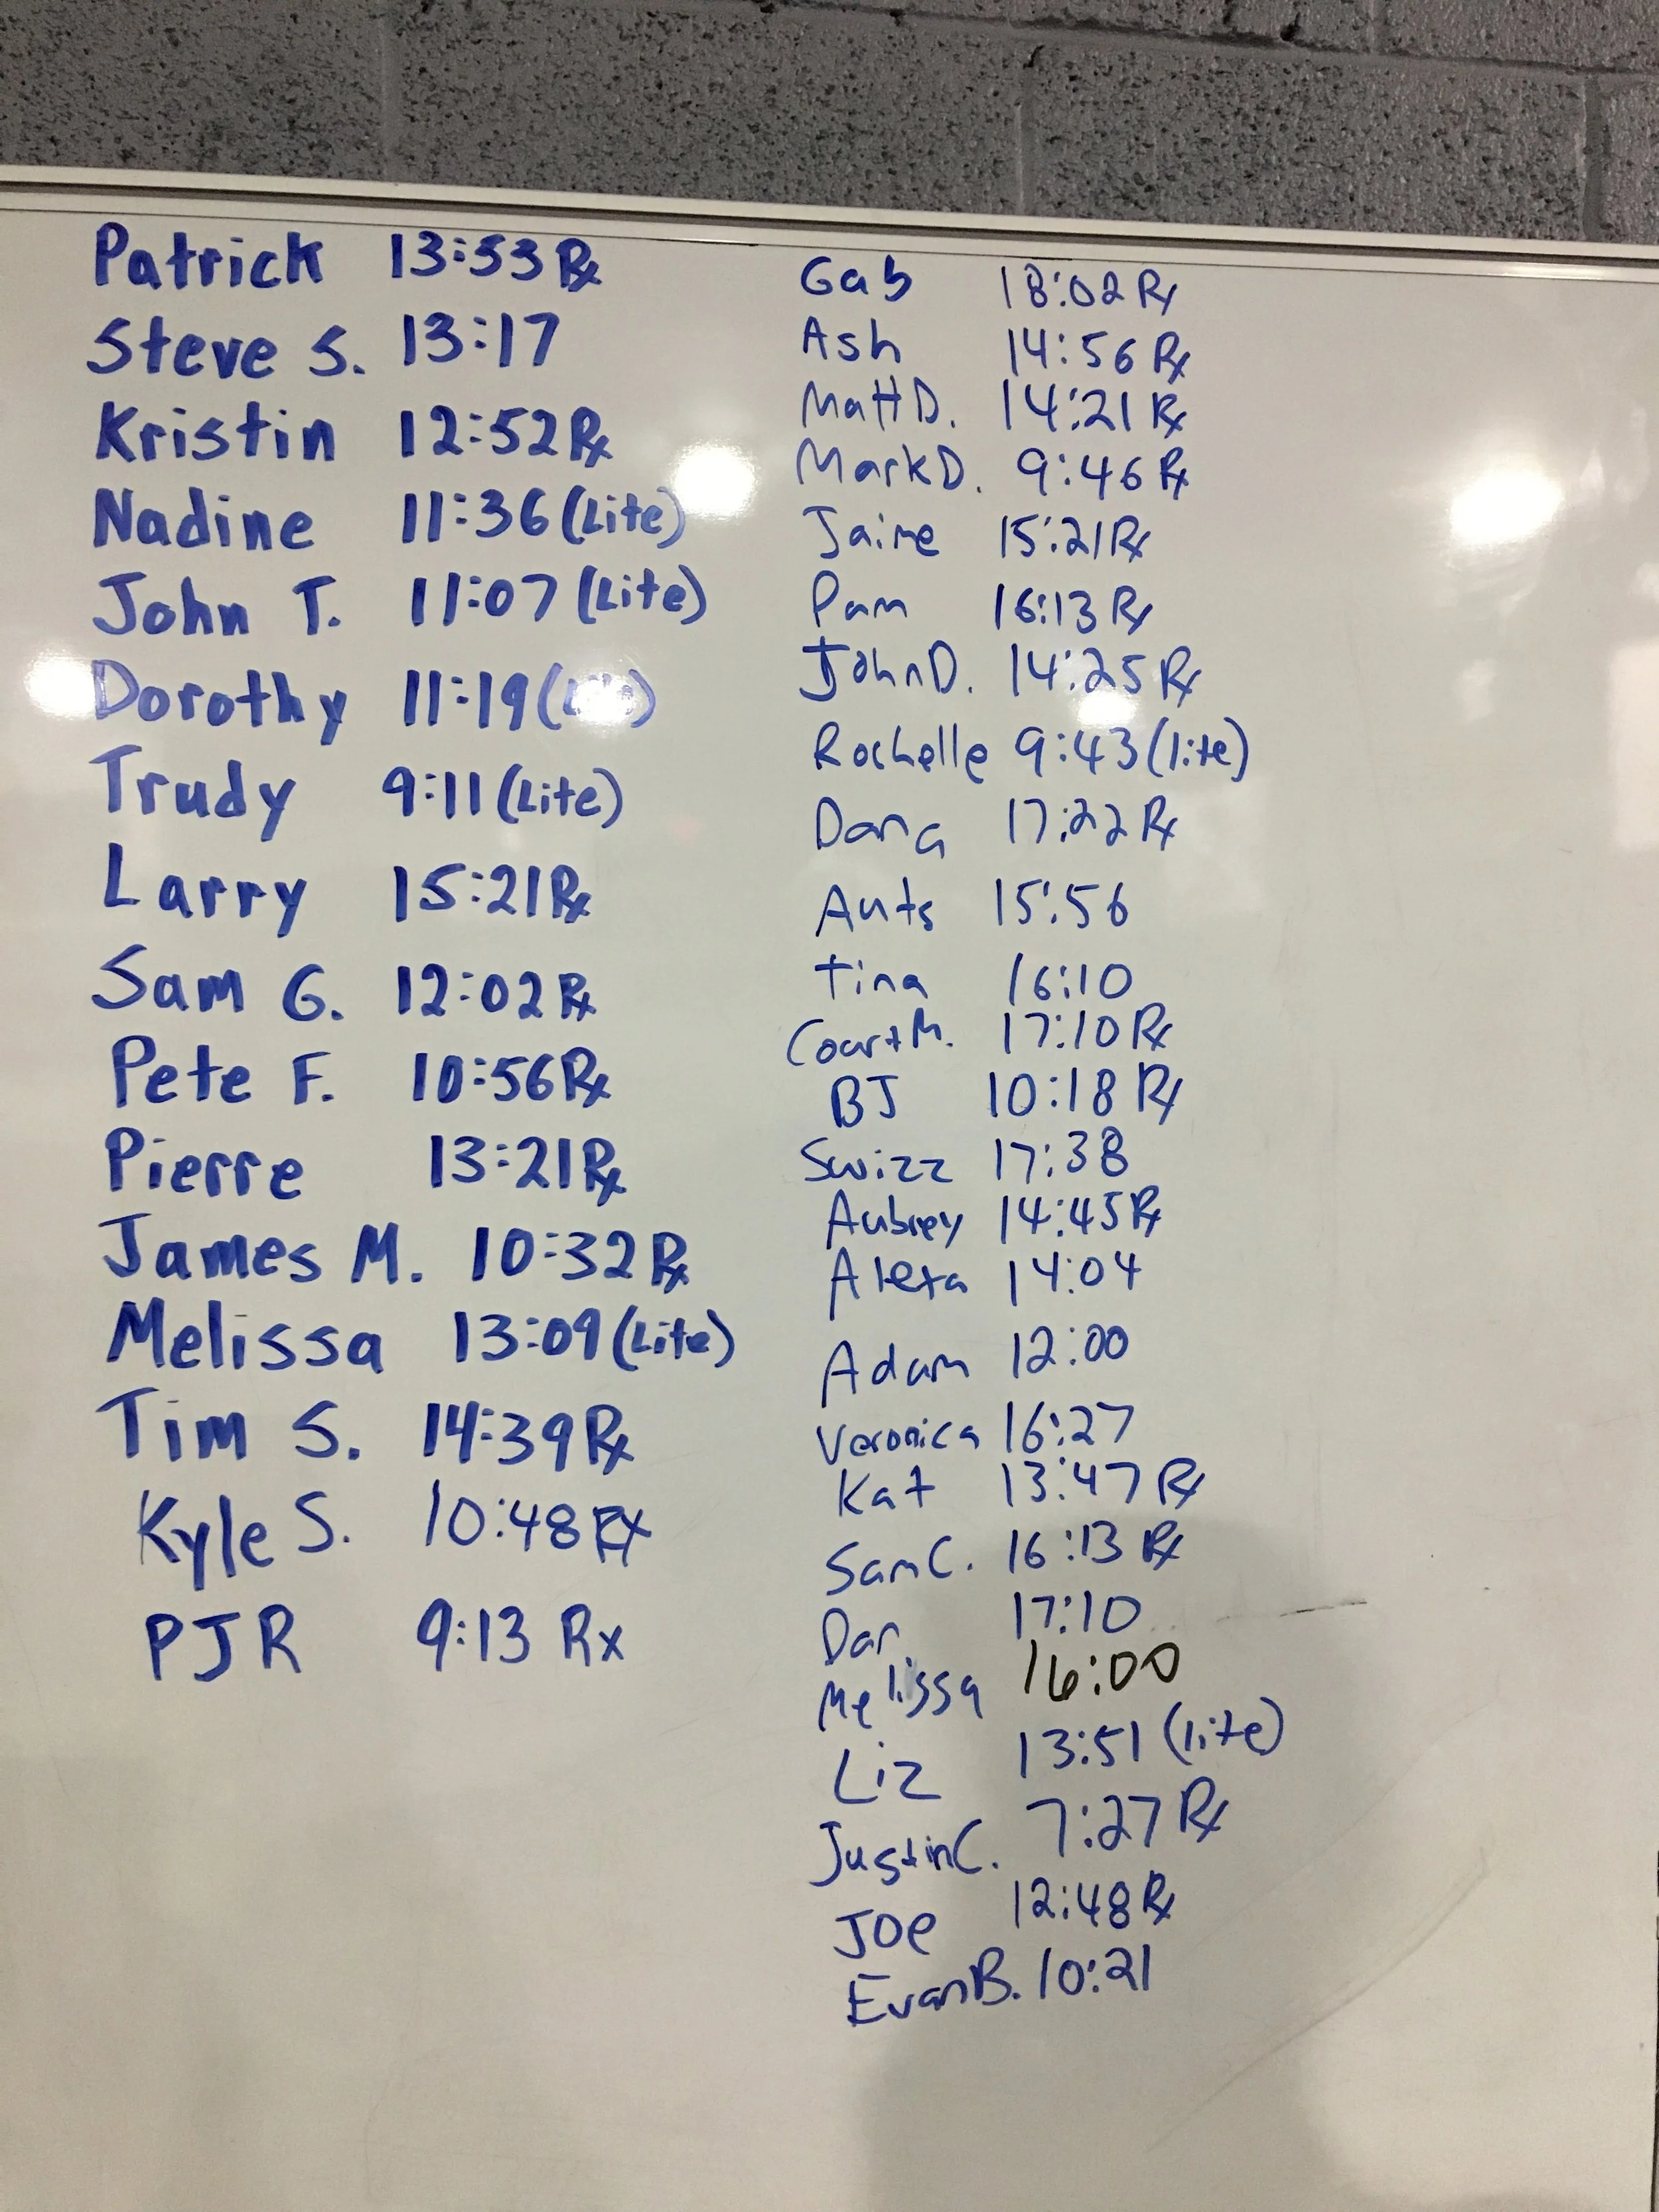 Patrick 13:53 Rx
Steve S. 13:17
Kristin 12:52 Rx
Nadine 11:36 (Lite)
John T. 11:07 (Lite)
Dorothy 11:19 (Lite)
Trudy 9:11 (Lite)
Larry 15:21 Rx
Sam G. 12:02 Rx
Pete F. 10:56 Rx
Pierre 13:21 Rx
James M. 10:32 Rx
Melissa 13:09 (Lite)
Tim S. 14:39 Rx
Kyle S. 10:48 RX
PJR 9:13 Rx
Gab 18:02 Rx
Ash 14:56 Rx
Matt D. 14:21 Rx
Mark D. 9:46 Rx
Jaime 15:21 Rx
Pam 16:13 Rx
John D. 14:25 Rx
Rochelle 9:43 (lite)
Dana 17:22 Rx
Auts 15:56
Tina 16:10
Court M. 17:10 Rx
BJ 10:18 Rx
Swizz 17:38
Aubrey 14:45 Rx
Alexa 14:04
Adam 12:00
Veronica 16:27
Kat 13:47 Rx
Sam C. 16:13 Rx
Dan 17:10
Melissa 16:00
Liz 13:51 (lite)
Justin C. 7:27 Rx
Joe 12:48 Rx
Evan B. 10:21